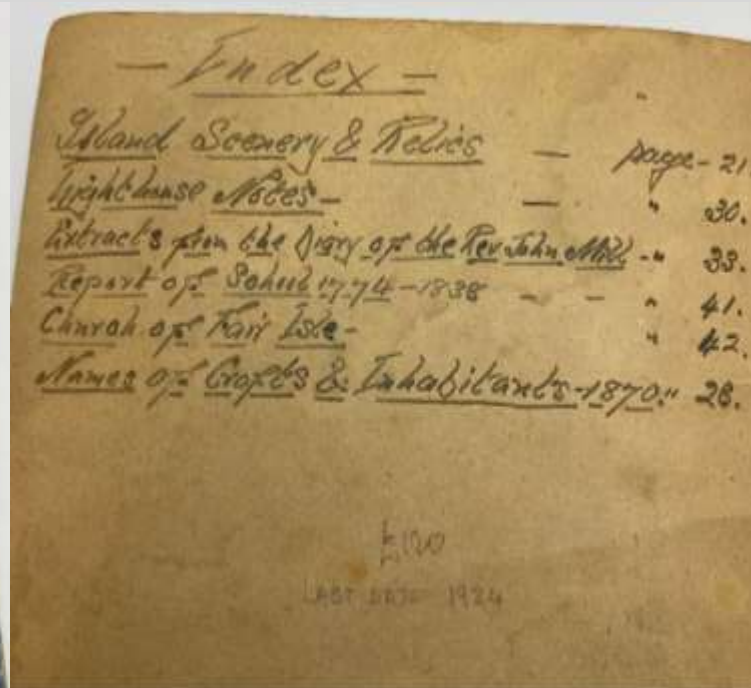 — Index —
Island Scenery & Relics — page - 21.
Lighthouse Notes - — " 30.
Extracts from the Diary of the Rev John Mill - " 33.
Report of School 1774 - 1838 - - " 41.
Church of Fair Isle - " 42.
Names of Crofts & Inhabitants - 1870. " 26.
£120
LAST DATE 1924